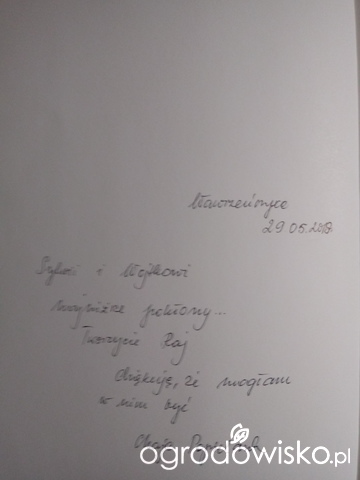 Wawrzeńczyce
29 05. 2018
Sylwii i Wojtkowi
najniższe pokłony...
Tworzycie Raj
dziękuję, że mogłam
w nim być
ogrodowisko.pl